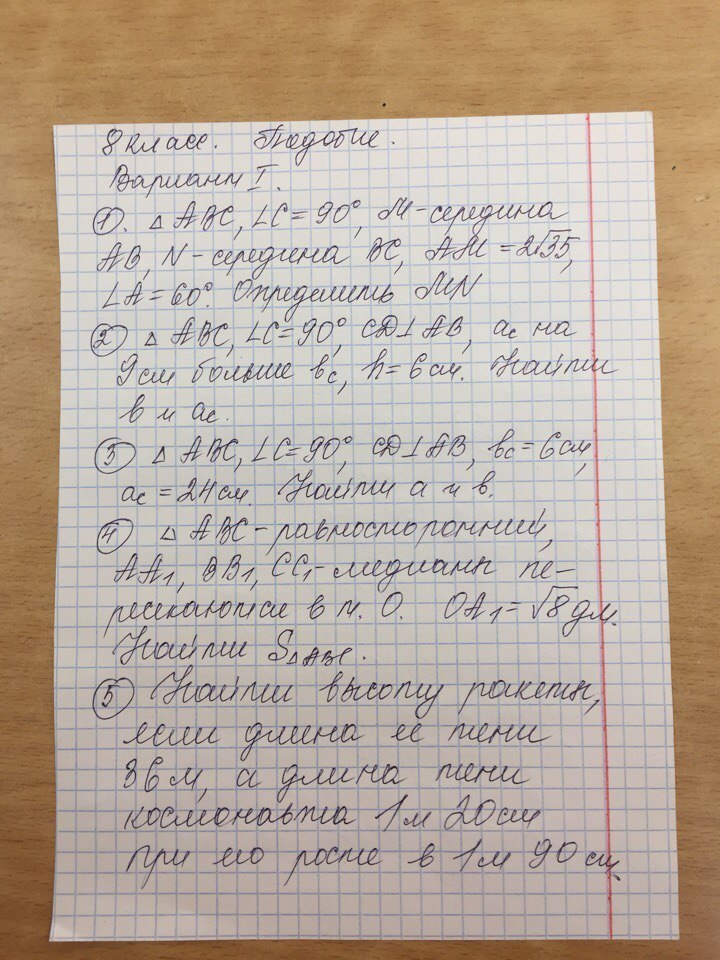 8 класс. Подобие.
Вариант I.
①. △ ABC, ∠C = 90°, M - середина
AB, N - середина BC, AM = 2√35,
∠A = 60°. Определить MN
② △ ABC, ∠C = 90°, CD⊥AB, aс на
9см больше bс, h = 6 см. Найти
в и aс.
③ △ ABC, ∠C = 90°, CD⊥AB, bс = 6 см,
aс = 24 см. Найти a и в.
④ △ ABC - равносторонний,
AA₁, BB₁, CC₁ - медианы пе-
ресекаются в т. O. OA₁ = √8 дм.
Найти S△ABC.
⑤ Найти высоту ракеты,
если длина её тени
36 м, а длина тени
космонавта 1 м 20 см
при его росте в 1 м 90 см